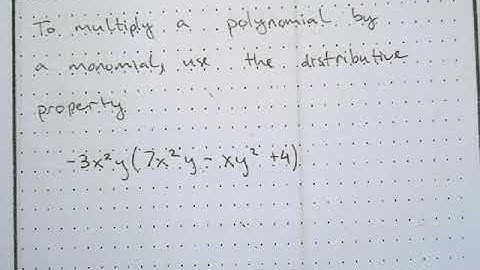 To multiply a polynomial by
a monomial, use the distributive
property.
-3x²y(7x²y - xy² +4)